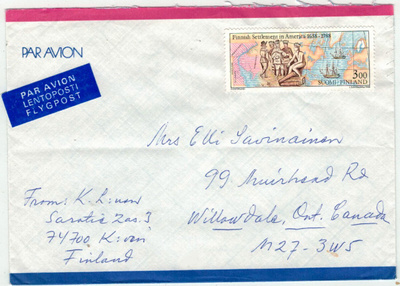 PAR AVION
Finnish Settlement in America 1638-1988
3,00
SUOMI·FINLAND
PAR AVION
LENTOPOSTI
FLYGPOST
Mrs Elli Savinainen
99 Muirhead Rd
Willowdale, Ont. Canada
M2J-3W5
From: K. L:nen
74700 K:vesi
Finland